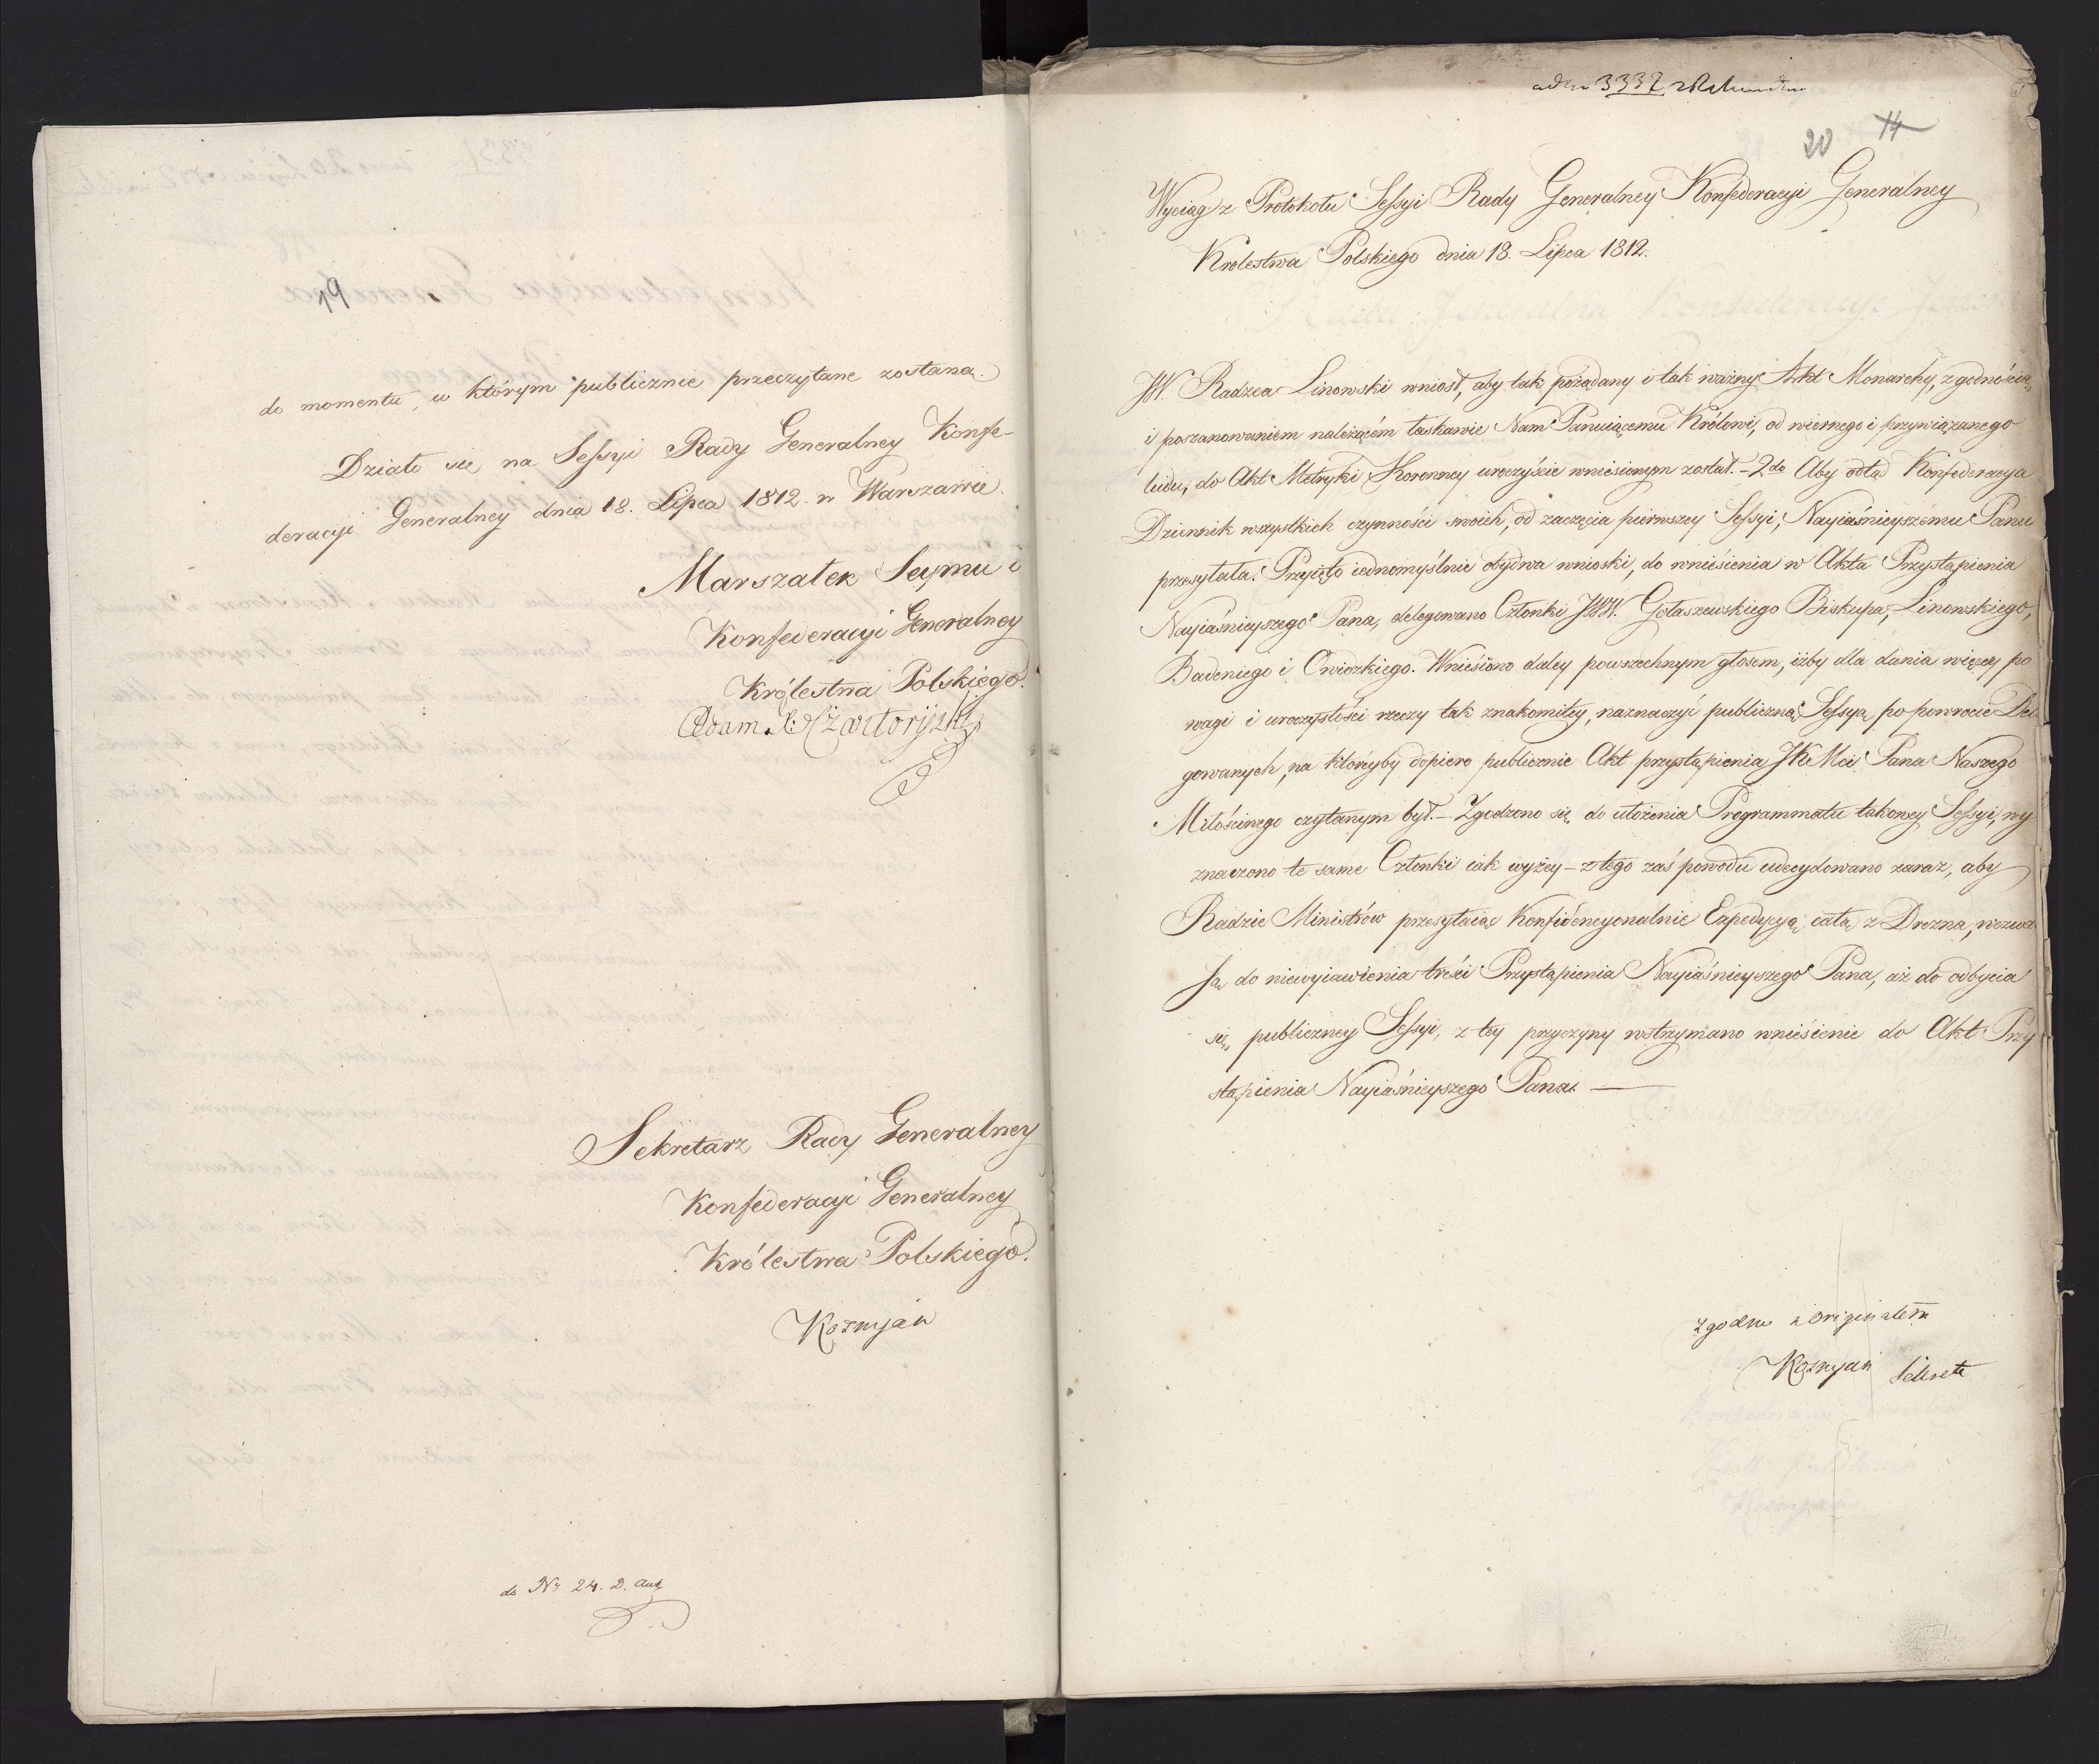 19
do momentu, w którym publicznie przeczytane zostaną.
Działo się na Sessyi Rady Generalney Konfe-
deracyi Generalney dnia 18. Lipca 1812 w Warszawie.
Marszałek Seymu i
Konfederacyi Generalney
Królestwa Polskiego.
Adam X: Czartoryski
Sekretarz Rady Generalney
Konfederacyi Generalney
Królestwa Polskiego.
Kozmian
do Nº 24. D.
3337
20 14
Wyciąg z Protokołu Sessyi Rady Generalney Konfederacyi Generalney
Krolestwa Polskiego dnia 18. Lipca 1812.
JW. Radzca Linowski wniosł, aby tak pożądany i tak ważny Akt Monarchy, z godnością,
i poszanowaniem należącém łaskawie Nam Panuiącemu Królowi, od wiernego i przywiązanego
ludu, do Akt Metryki Koronney uroczyście wniesionym został. – 2do Aby odtąd Konfederacya
Dziennik wszystkich czynności swoich, od zaczęcia pierwszey Sessyi, Nayiaśnieyszemu Panu
przesyłała. Przyięto iednomyślnie obydwa wnioski, do wniesienia w Akta Przystąpienia
Nayiaśnieyszego Pana, delegowano Członki JWW. Gołaszewskiego Biskupa, Linowskiego,
Badeniego i Owidzkiego. Wniesiono daley powszechnym głosem, iżby dla dania więcey po
wagi i uroczystości rzeczy tak znakomitey, naznaczyć publiczną Sessyą po powrocie Dele
gowanych, na któreyby dopiero publicznie Akt przystąpienia JKMci Pana Naszego
Miłościwego czytanym był. – Zgodzono się do ułożenia Programmatu takowey Sessyi, wy
znaczono te same Członki iak wyżey – z tego zaś powodu udecydowano zaraz, aby
Radzie Ministrów przesyłaiąc Konfidencyonalnie Expedycyą całą z Drezna, wezwa
Ją do niewyiawienia treści Przystąpienia Nayiaśnieyszego Pana, aż do odbycia
się publiczney Sessyi, z tey przyczyny wstrzymano wniesienie do Akt Przy
stąpienia Nayiaśnieyszego Pana. —
Zgodno z Originałem
Kozmian Sekret